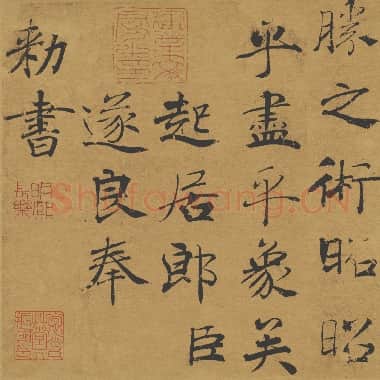 勝之術昭昭
乎盡乎象矣
起居郎臣
遂良奉
勅書
Shufawang.CN